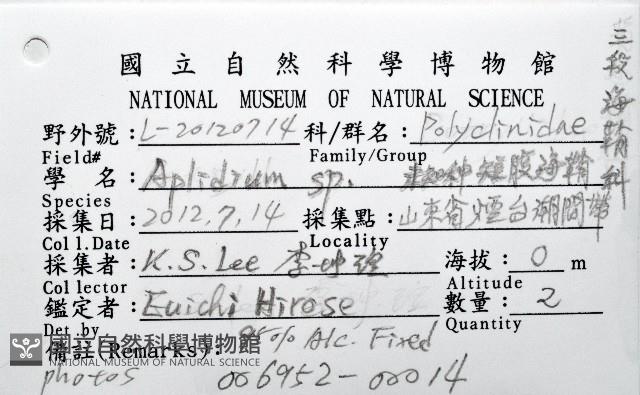 國立自然科學博物館
NATIONAL MUSEUM OF NATURAL SCIENCE
三段海鞘科
野外號: L-20120714 科/群名: Polyclinidae
Field# Family/Group
學 名: Aplidium sp. 未知種短腹海鞘
Species
採集日: 2012.7.14 採集點: 山東省煙台潮間帶
Col l.Date Locality
採集者: K.S.Lee 李坤瑄 海拔: 0 m
Col lector Altitude
鑑定者: Euichi Hirose 數量: 2
Det.by Quantity
備註(Remarks): 95% Alc. Fixed
photos 006952-00014
國立自然科學博物館
NATIONAL MUSEUM OF NATURAL SCIENCE